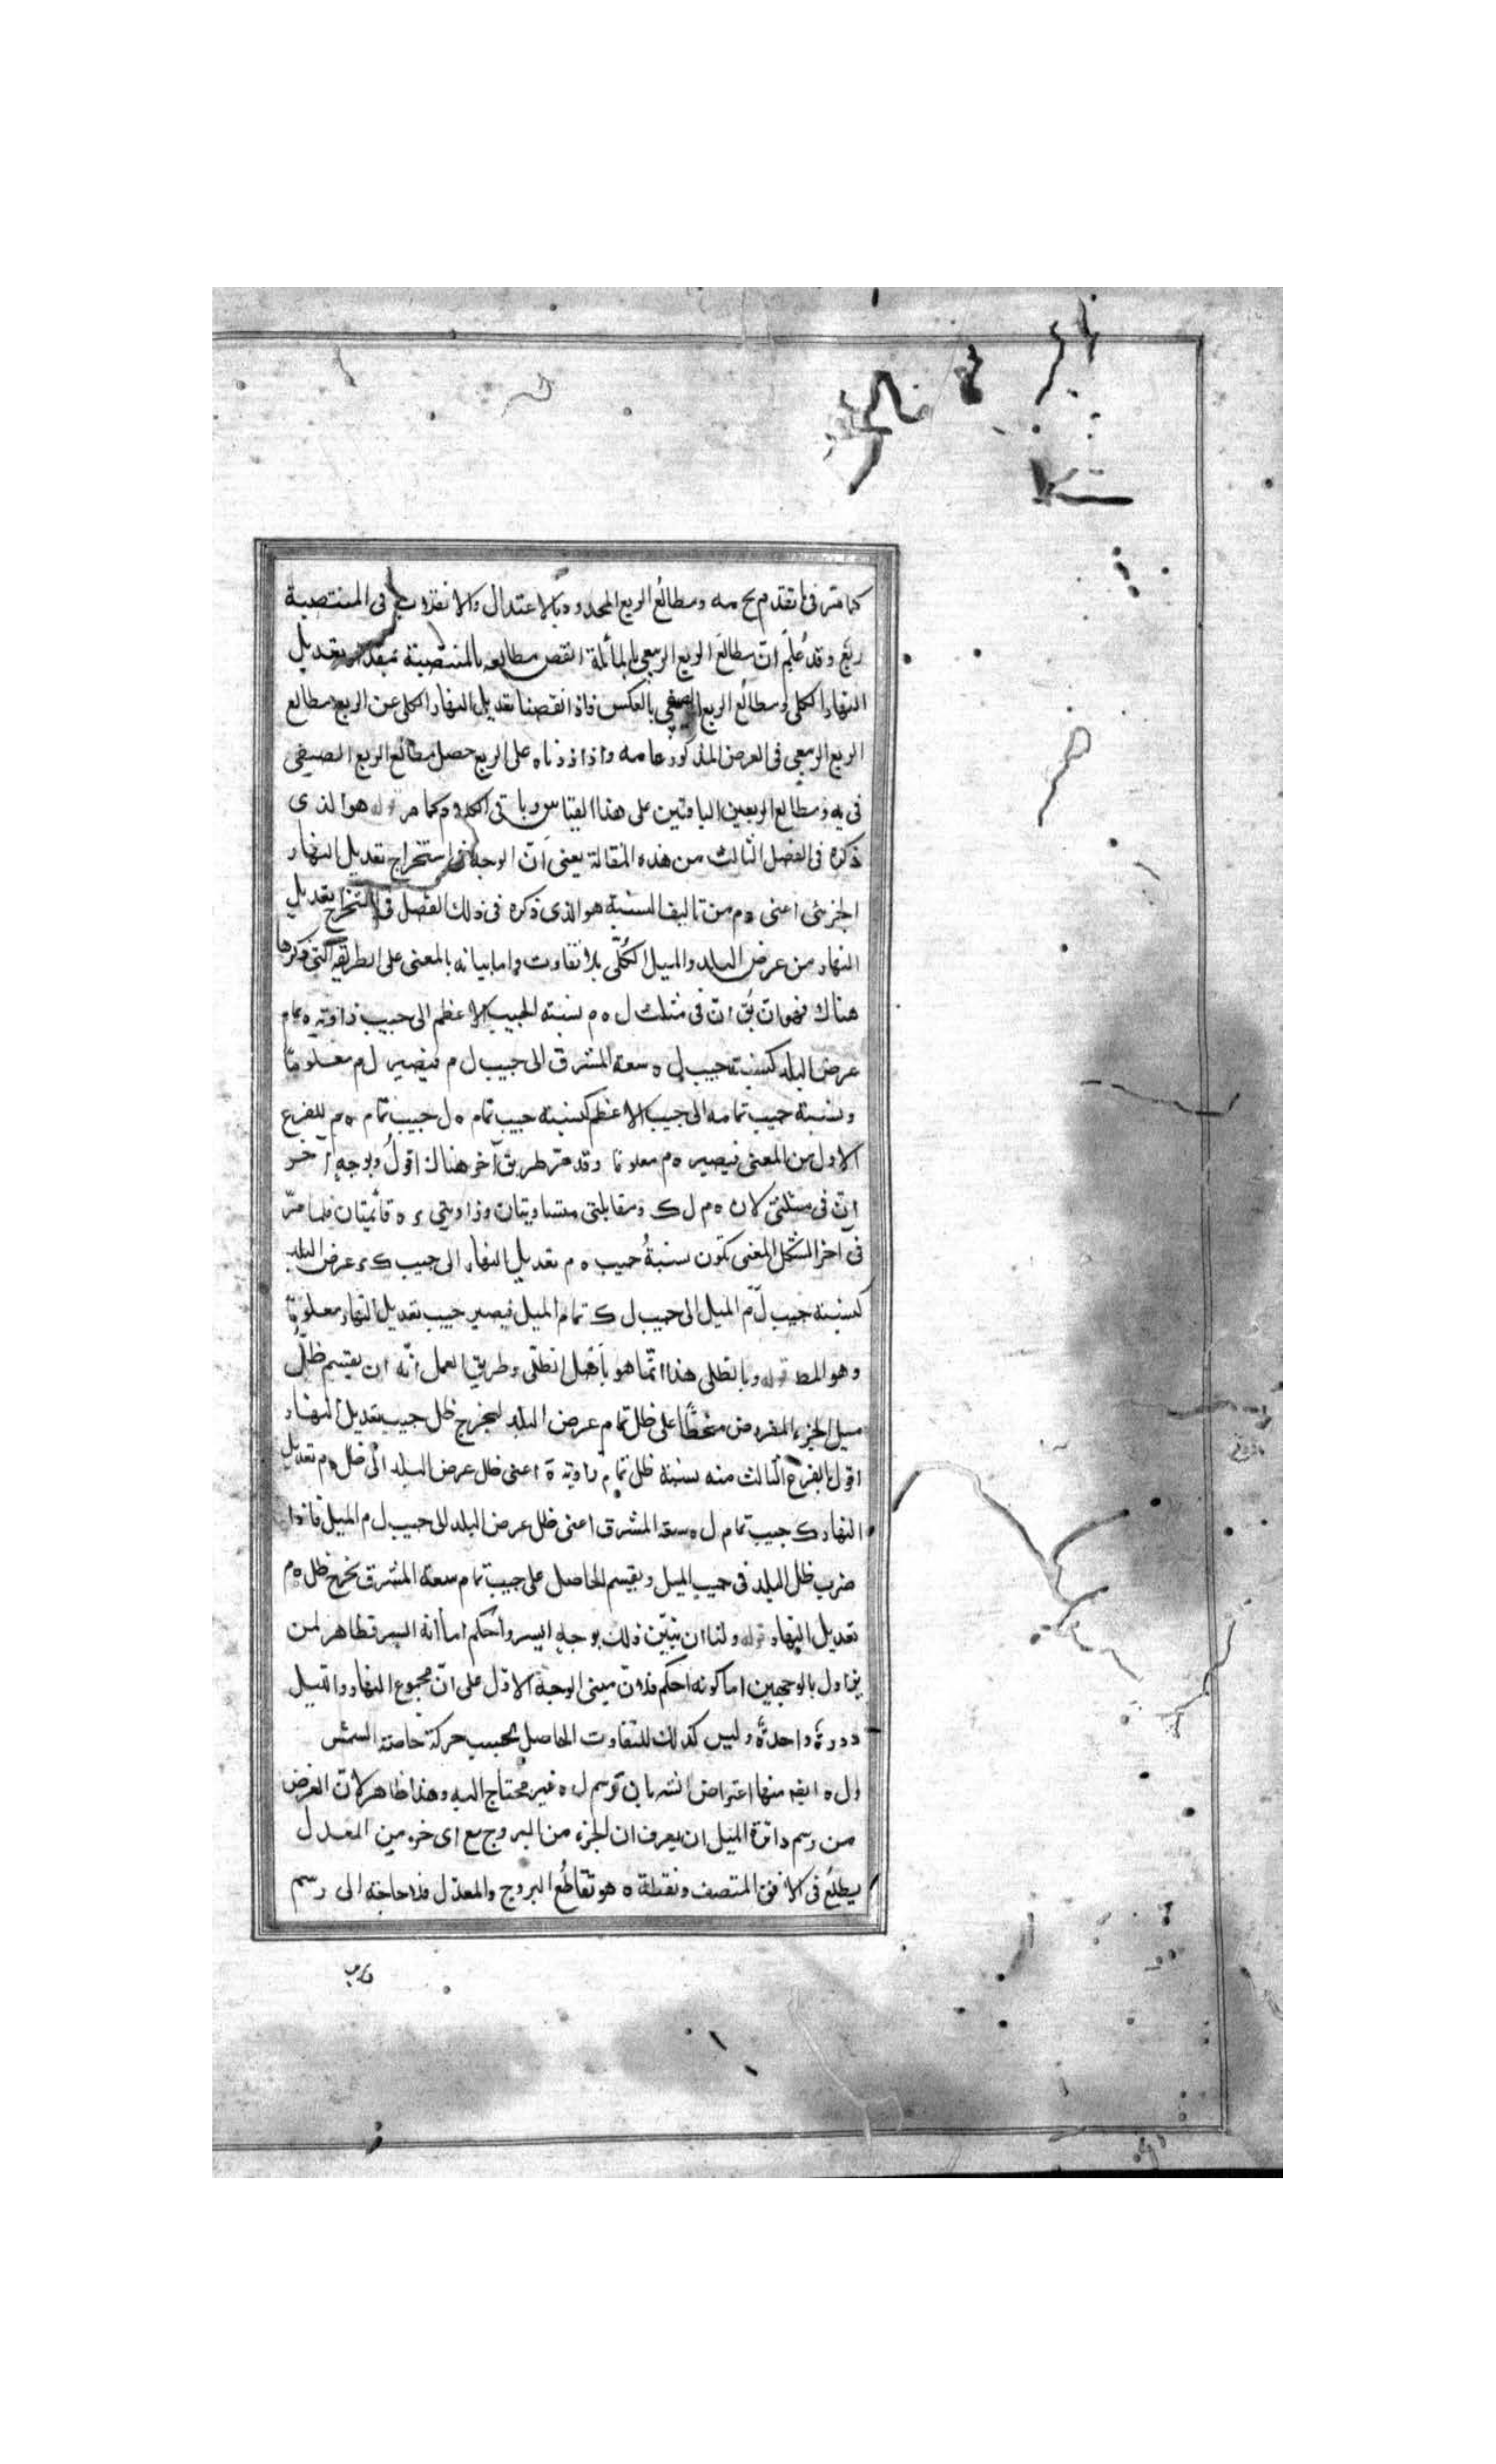 كما مر فى ما تقدم يح مه ومطالع الربع المحدود بالاعتدال والانقلاب فى المنتصبة
ربع وقد علم ان مطالع الربع الربيعى بالمائلة انقص من مطالعه بالمنتصبة بمقدار تعديل
النهار الكلى ومطالع الربع الصيفى بالعكس فاذا نقصنا تعديل النهار الكلى عن الربع مطالع
الربع الربيعى فى العرض المذكور عا مه واذا زدناه على الربع حصل مطالع الربع الصيفى
فى يه ومطالع الربعين الباقيين على هذا القياس وباقى الكلام كما مر قوله هو الذى
ذكره فى الفصل الثالث من هذه المقالة يعنى ان الوجه فى استخراج تعديل النهار
الجزئى اعنى ه م من تاليف النسبة هو الذى ذكره فى ذلك الفصل فى استخراج تعديل
النهار من عرض البلد والميل الكلى بلا تفاوت واما بيانه بالمغنى على الطريقة التى ذكرها
هناك فهو ان يق ان فى مثلث ل ه م نسبته الجيب الاعظم الى جيب زاوية ه تمام
عرض البلد كنسبته جيب ل ه سعة المشرق الى جيب ل م فيصير ل م معلوما
ونسبة جيب تمامه الى جيب الاعظم كنسبة جيب تمام ه ل جيب تمام ه م للفرع
الاول من المغنى فيصير ه م معلوما وقد مر طريق آخر هناك اقول وبوجه آخر
ان فى مثلثى لان ه م ل ك ومقابلتى متساويتان وزاويتى ء ه قائمتان فلما مر
فى آخر الشكل المغنى تكون نسبة جيب ه م تعديل النهار الى جيب ك ء عرض البلد
كنسبته جيب ل م الميل الى جيب ل ك تمام الميل فيصير جيب تعديل النهار معلوما
وهو المط قوله وبالظلى هذا انما هو باصل الظلى وطريق العمل انه ان يقسم ظل
ميل الجزء المفروض منحطا على ظل تمام عرض البلد ليخرج ظل جيب تعديل النهار
اقول بالفرع الثالث منه نسبة ظل تمام زاوية ه اعنى ظل عرض البلد الى ظل ه م تعديل
النهار ك جيب تمام ل ه سعة المشرق اعنى ظل عرض البلد الى جيب ل م الميل فاذا
ضرب ظل البلد فى جيب الميل ويقسم الحاصل على جيب تمام سعة المشرق يخرج ظل ه م
تعديل النهار قوله ولنا ان نبين ذلك بوجه ايسر واحكم اما انه ايسر فظاهر لمن
يزاول بالوجهين اما كونه احكم فلان مبنى الوجه الاول على ان مجموع النهار والليل
دورة واحدة وليس كذلك للتفاوت الحاصل بحسب حركة خاصة الشمس
ول ه ايضا منها اعتراض انته بان ترسم ل ه غير محتاج اليه وهذا ظاهر لان الغرض
من رسم دائرة الميل ان يعرف ان الجزء من البروج مع اى جزء من المعدل
يطلع فى الافق المنتصف ونقطة ه هو تقاطع البروج والمعدل فلا حاجة الى رسم